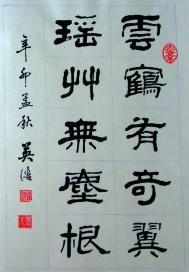 雲鶴有奇翼
瑤艸無塵根
辛卯孟秋 英浩